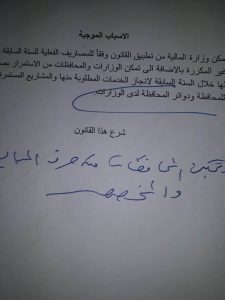 الاسباب الموجبة
مكن وزارة المالية من تطبيق القانون وفقاً للمصاريف الفعلية للسنة السابقة
غير المكررة بالاضافة الى تمكن الوزارات والمحافظات من الاستمرار بص
لها خلال السنة السابقة لانجاز الخدمات المطلوبة منها والمشاريع المستمر
للمحافظة ودوائر المحافظة لدى الوزارات.
شرع هذا القانون
وتمكين المحافظات من صرف المبالغ